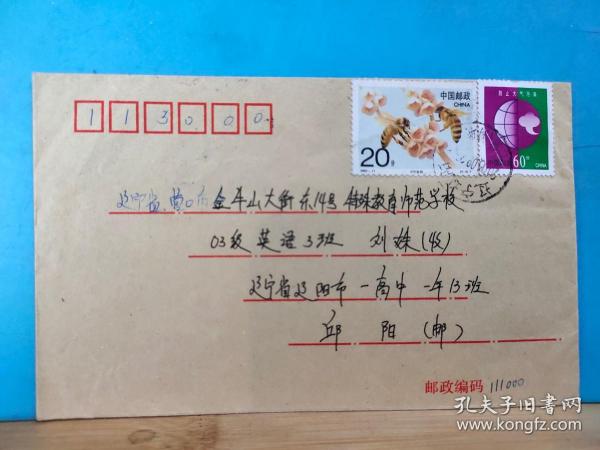 113000
中国邮政
CHINA
20分
防止大气污染
60分
CHINA
辽宁省营口市金牛山大街东14号特殊教育师范学校
03级英语3班 刘姝(收)
辽宁省辽阳市一高中一年13班
邱阳(邮)
邮政编码 111000
孔夫子旧书网
www.kongfz.com